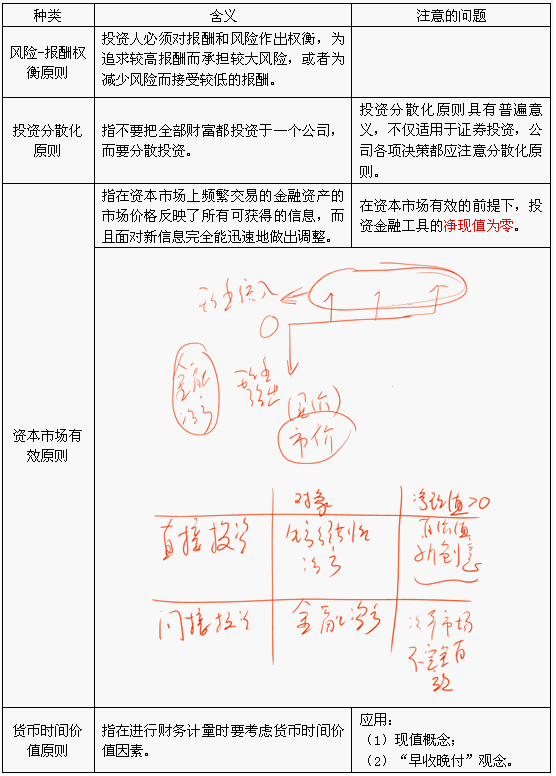 种类
含义
注意的问题
风险-报酬权
衡原则
投资人必须对报酬和风险作出权衡，为
追求较高报酬而承担较大风险，或者为
减少风险而接受较低的报酬。
投资分散化
原则
指不要把全部财富都投资于一个公司，
而要分散投资。
投资分散化原则具有普遍意
义，不仅适用于证券投资，公
司各项决策都应注意分散化原
则。
资本市场有
效原则
指在资本市场上频繁交易的金融资产的
市场价格反映了所有可获得的信息，而
且面对新信息完全能迅速地做出调整。
在资本市场有效的前提下，投
资金融工具的净现值为零。
现金流入
0
金融
资产
现金
流出
市价
对象
净现值>0
直接投资
生产经营性
资产
有价值
的创意
间接投资
金融资产
资本市场
不完全有
效
货币时间价
值原则
指在进行财务计量时要考虑货币时间价
值因素。
应用：
（1）现值概念；
（2）“早收晚付”观念。